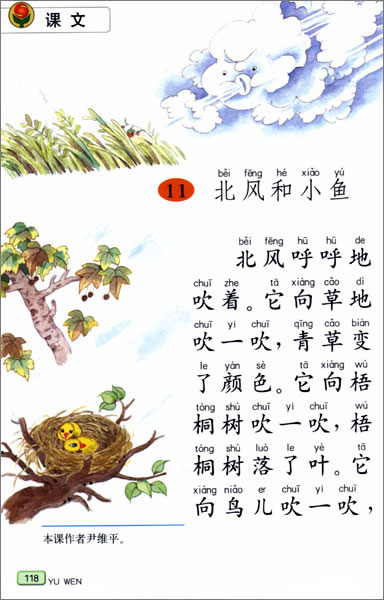 课文
běi fēng hé xiǎo yú
11 北风和小鱼
běi fēng hū hū de
北风呼呼地
chuī zhe tā xiàng cǎo dì
吹着。它向草地
chuī yi chuī qīng cǎo biàn
吹一吹，青草变
le yán sè tā xiàng wú
了颜色。它向梧
tóng shù chuī yi chuī wú
桐树吹一吹，梧
tóng shù luò le yè tā
桐树落了叶。它
xiàng niǎo er chuī yi chuī
向鸟儿吹一吹，
本课作者尹维平。
118 YU WEN